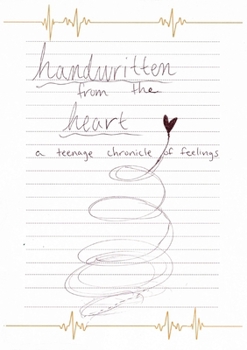 handwritten
from the
heart
a teenage chronicle of feelings